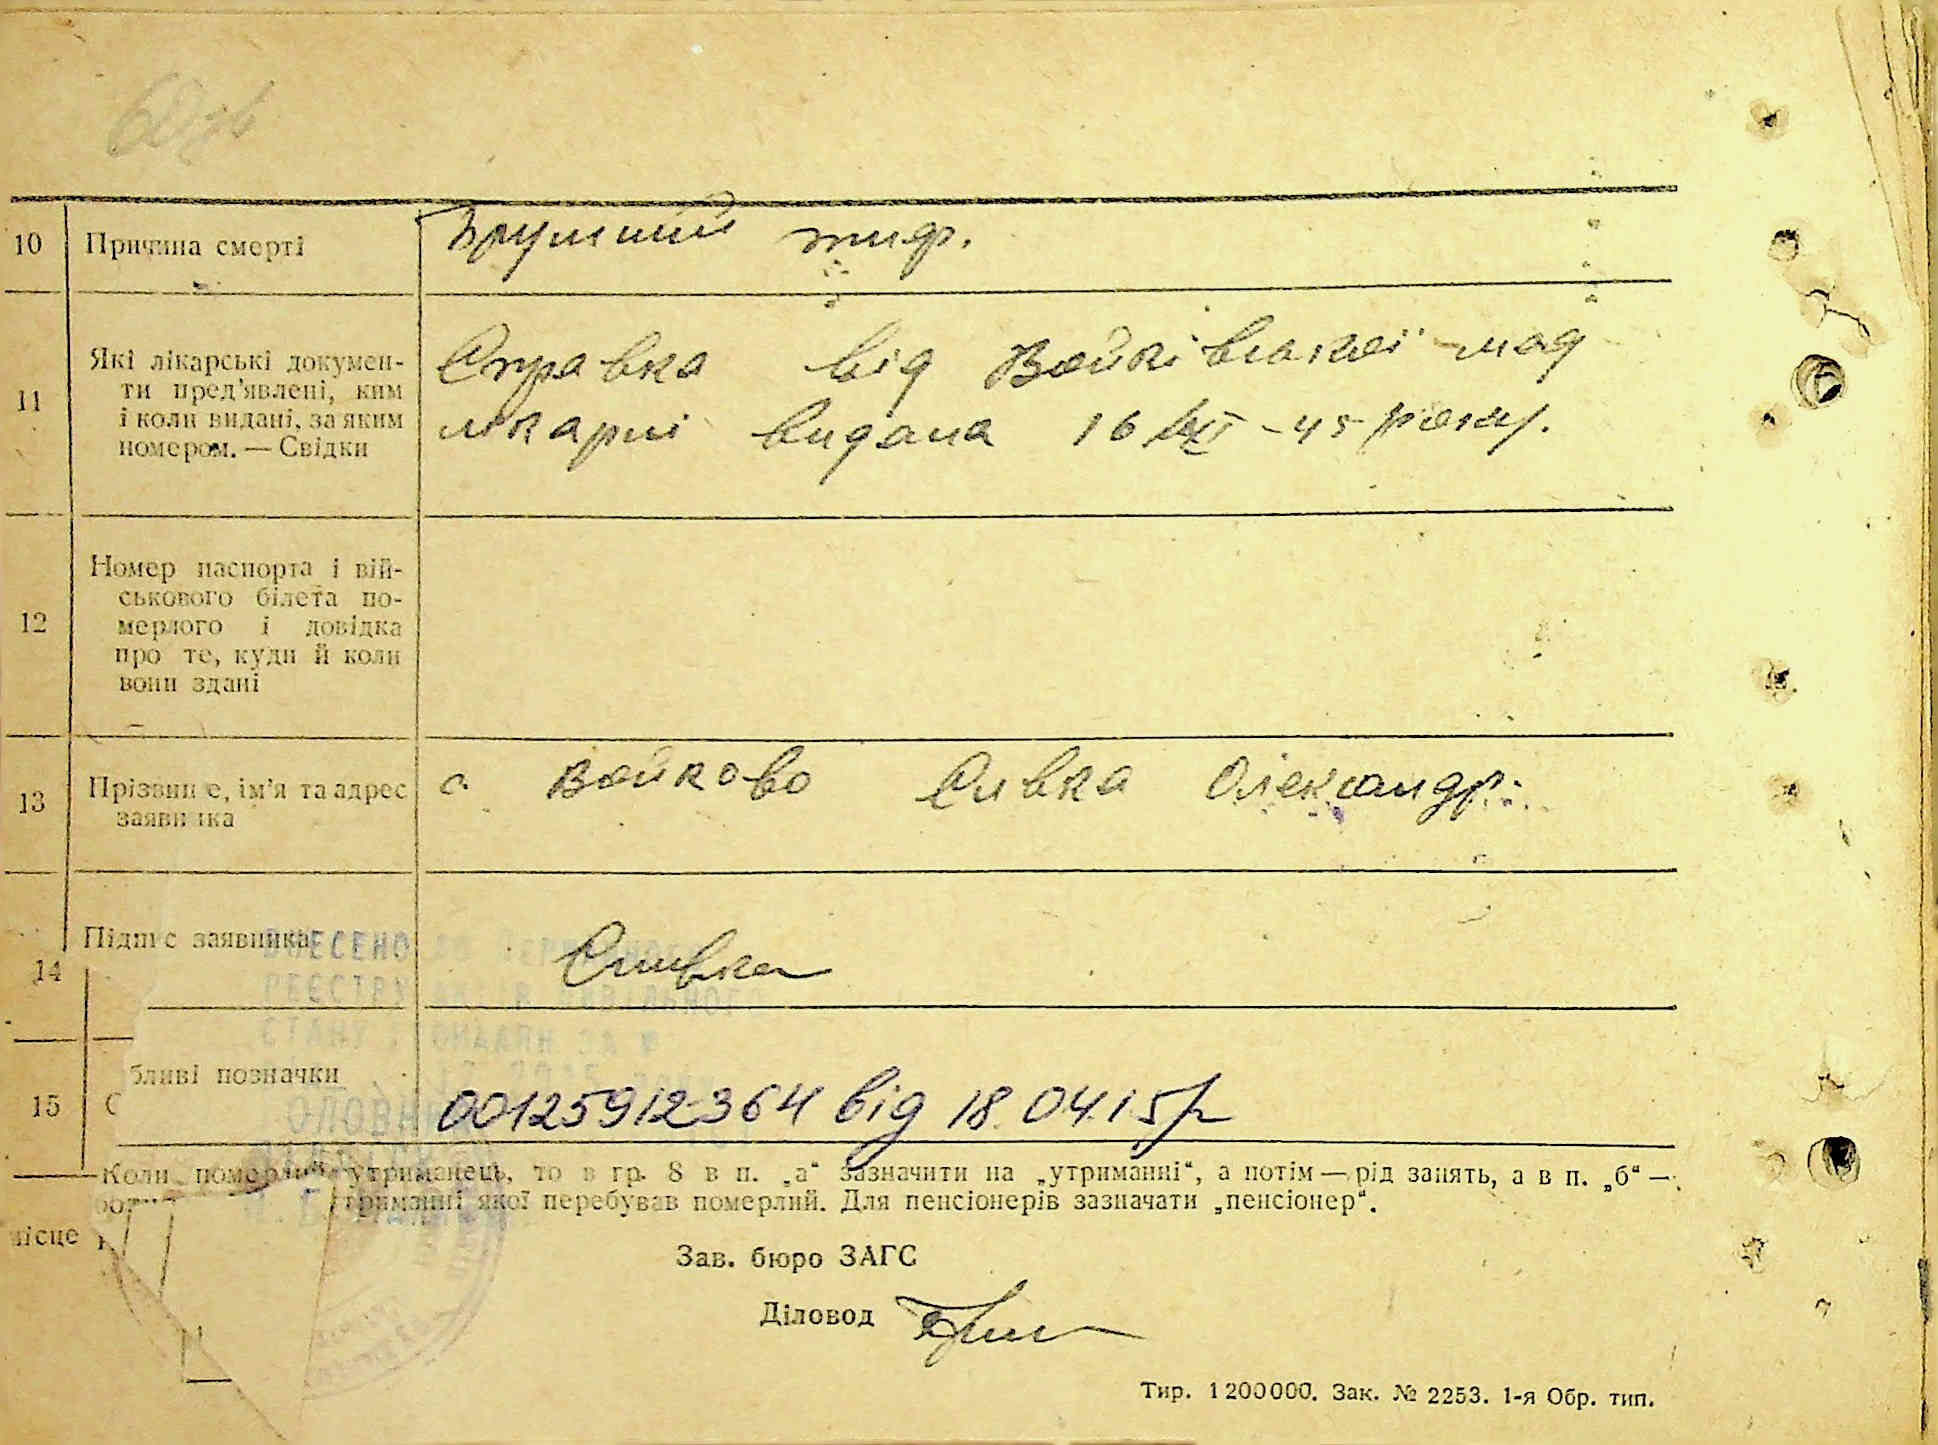 10 Причина смерті Брушний тиф.
11 Які лікарські докумен-
ти пред'явлені, ким
і коли видані, за яким
номером. — Свідки
Справка від Войківської мед
лікарні видана 16 XI - 45 року.
12 Номер паспорта і вій-
ськового білета по-
мерлого і довідка
про те, куди й коли
вони здані
13 Прізвищ е, ім'я та адрес
заявн ика
с. Войково Сливка Олександр.
14 Підпис заявника Сливка
ВНЕСЕНО ДО ДЕРЖАВНОГО
РЕЄСТРУ АКТІВ ЦИВІЛЬНОГО
СТАНУ ГРОМАДЯН ЗА №
15 бливі позначки 00125912364 від 18.04.15р
Коли померлий утриманець, то в гр. 8 в п. „а“ зазначити на „утриманні“, а потім — рід занять, а в п. „б“ —
триманні якої перебував померлий. Для пенсіонерів зазначати „пенсіонер“.
місце
Зав. бюро ЗАГС
Діловод
Тир. 1200000. Зак. № 2253. 1-я Обр. тип.